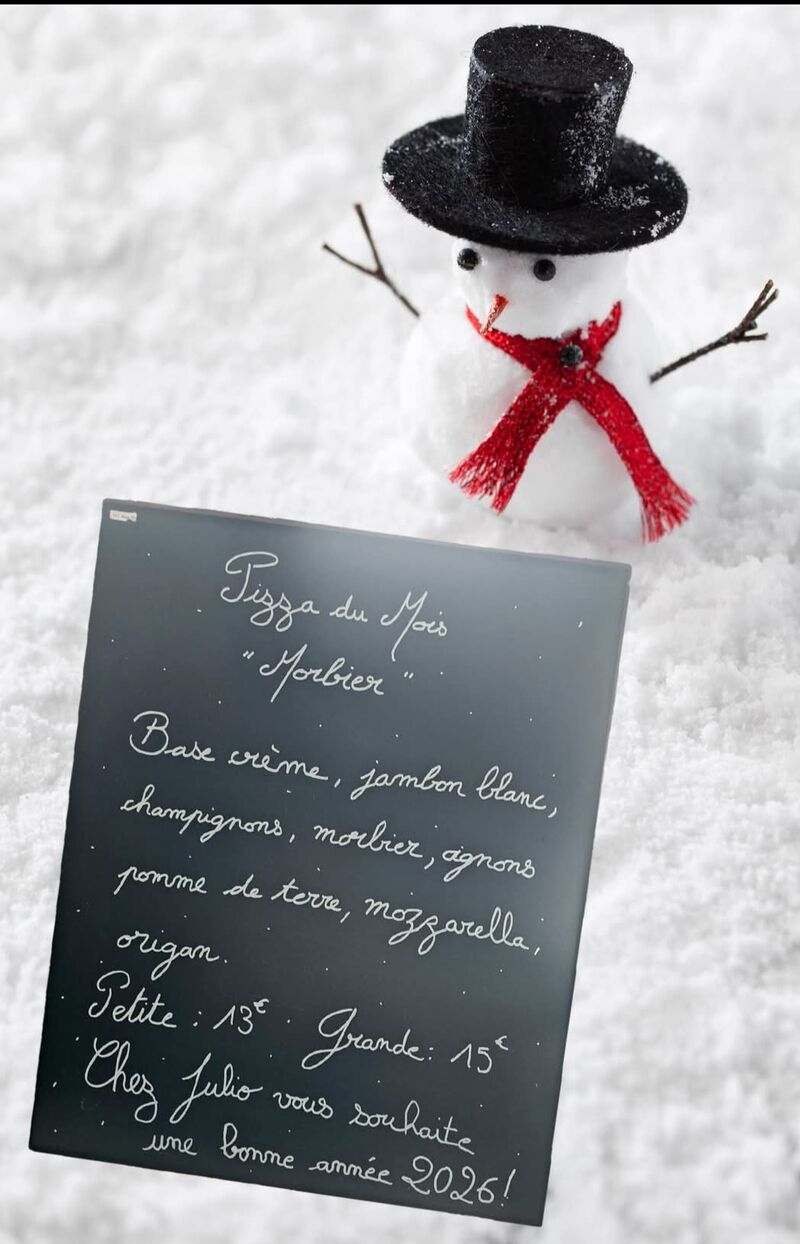 Pizza du Mois
"Morbier"
Base crème, jambon blanc,
champignons, morbier, oignons
pomme de terre, mozzarella,
origan.
Petite : 13€ . Grande : 15€
Chez Julio vous souhaite
une bonne année 2026!